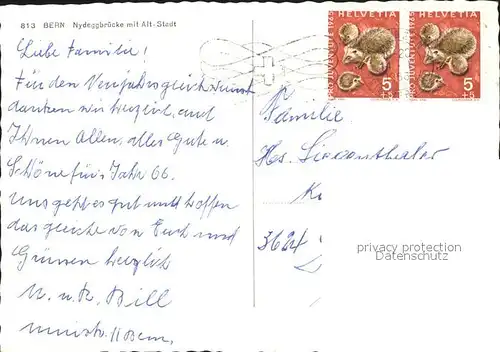 813 BERN Nydeggbrücke mit Alt-Stadt
Liebe Familie!
Für den Neujahrsgleichwunst
danken wir herzlich, und
Ihnen Allen, alles Gute u.
Schöne für's Jahr 66.
Uns geht es gut und hoffen
das gleiche von Euch und
Grüssen herzlich
u. Bill
Bern,
HELVETIA
PRO JUVENTUTE 1965
5
+5
HELVETIA
PRO JUVENTUTE 1965
5
+5
Familie
Hs. Siegenthaler
3624
privacy protection
Datenschutz